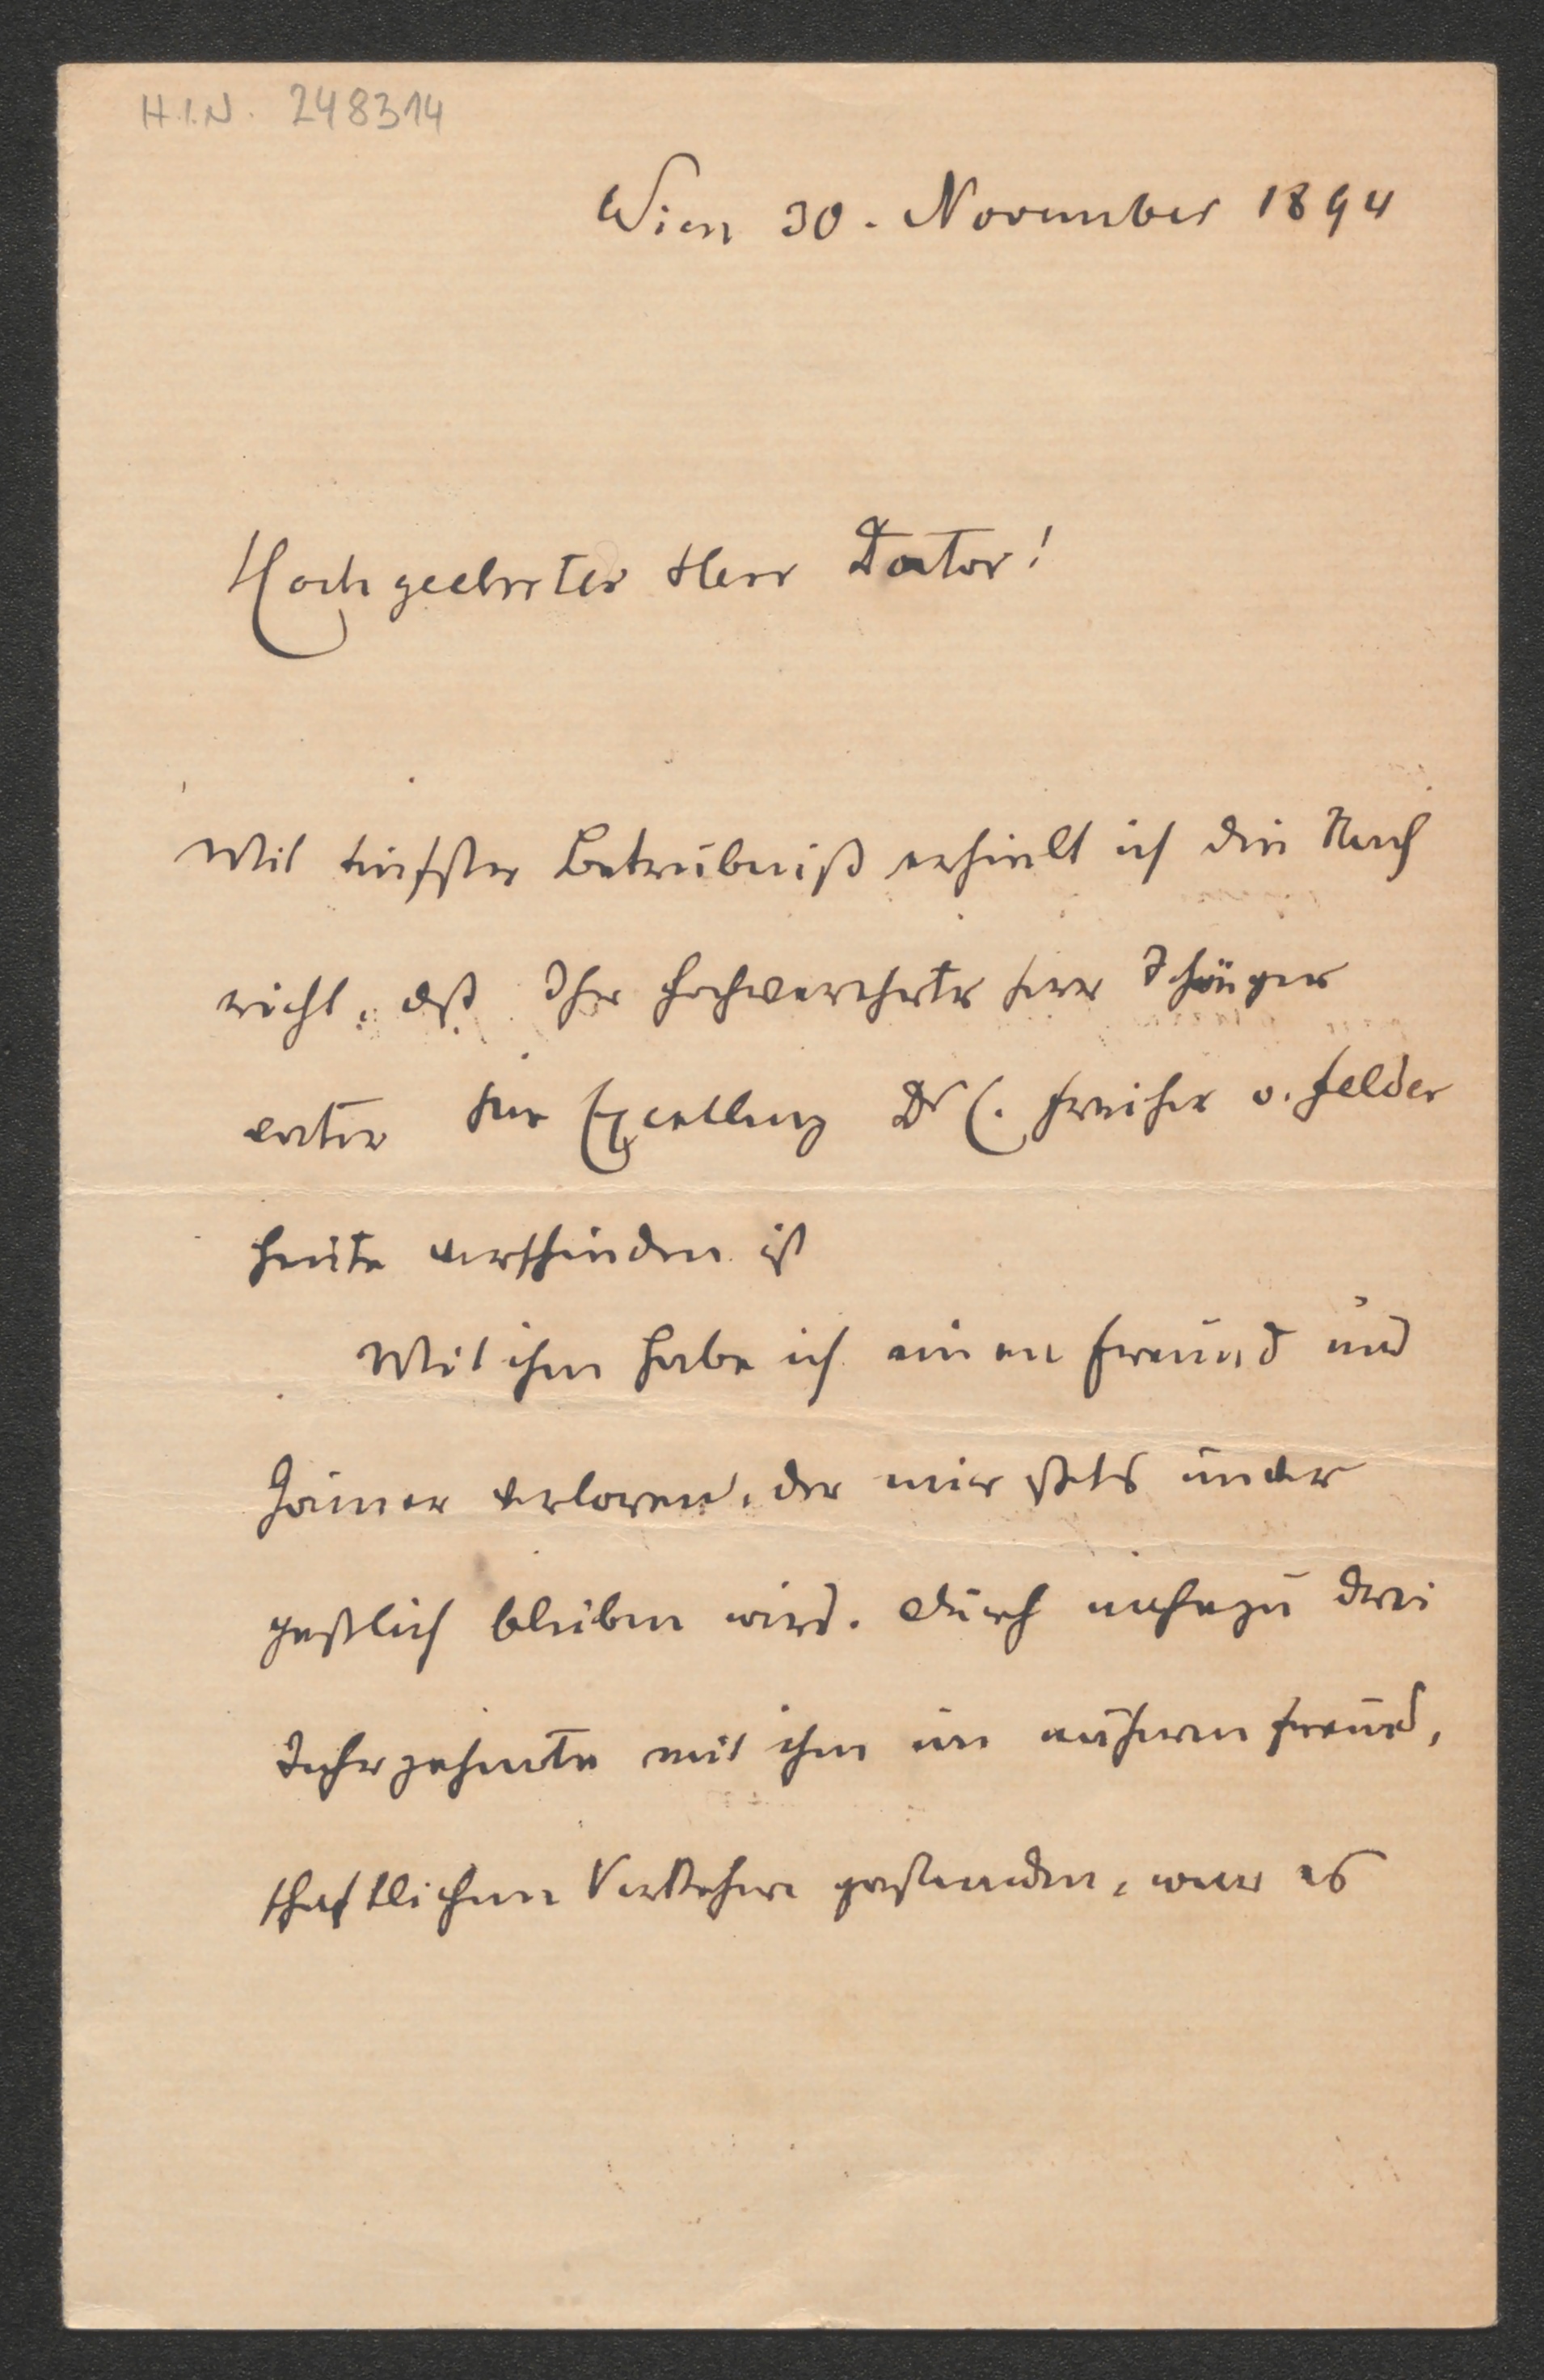 H.I.N. 248314
Wien 30. November 1894
Hochgeehrter Herr Doctor!
Mit tiefster Betrübniß erhielt ich die Nach
richt, daß Ihr hochverehrter Herr Schwieger
vater Seine Excellenz Dr C. Freiherr v. Felder
heute verschieden ist
Mit ihm habe ich einen Freund und
Gönner verloren, der mir stets unver
geßlich bleiben wird. Durch nahezu drei
Jahrzehnte mit ihm im näheren freund,
schaftlichen Verkehre gestanden, war es